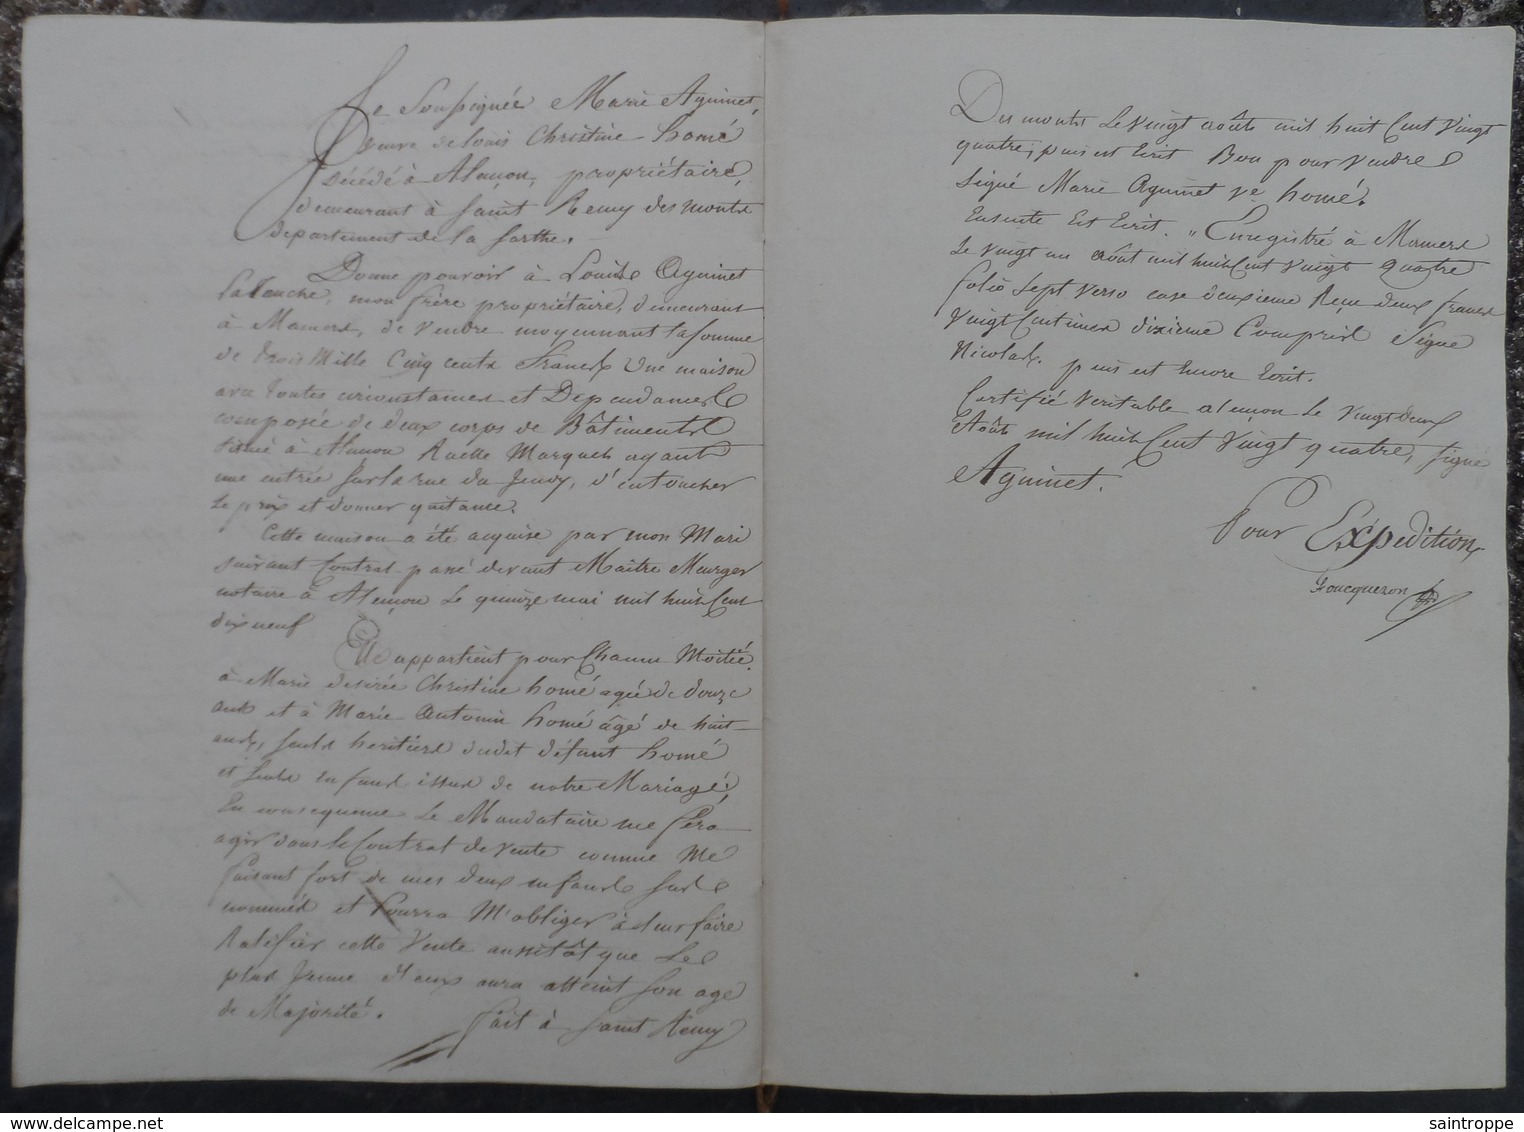 Je Soussignée Marie Aguinet,
Veuve de louis Christine homé
décédé à Alençon, propriétaire,
demeurant à Saint Remy des monts
departement de la sarthe.
Donne pouvoir à Louis Aguinet
latouche, mon frère propriétaire, demeurant
à Mamers, de Vendre moyennant la somme
de trois Mille Cinq cents francs Une maison
avec toutes circonstances et Dependances
composée de deux corps de Bâtiments
située à Alençon Ruelle ayant
une entrée sur la rue du Jeudy, d'en toucher
le prix et donner quitance.
Cette maison a été acquise par mon Mari
suivant Contrat passé devant Maitre Murger
notaire à Alençon le quinze mai mil huit Cent
dix neuf
Elle appartient pour Chacun Moitié.
à Marie desirée Christine homé agée de douze
ans et à Marie Antonin homé âgé de huit
ans, seuls heritiers dudit défunt homé
et seuls enfans issus de notre Mariage,
En consequence le Mandataire me fera
agir dans le Contrat de Vente comme Me
faisant fort de mes deux enfans sus
nommés et Pourra M'obliger à leur faire
Ratifier cette Vente aussitôt que Le
plus Jeune d'eux aura atteint son age
de Majorité. fait à Saint Remy
Des monts Le vingt août mil huit Cent Vingt
quatre, puis est Ecrit Bon pour Vendre
signé Marie Aguinet ve homé.
Ensuite Est Ecrit. " Enregistré à Mamers
le vingt un août mil huit Cent vingt quatre
folio sept verso case deuxieme Reçu deux francs
Vingt Centimes dixieme Compris Signé
Nicolas. puis est Encore Ecrit.
Certifié Veritable alençon Le Vingt deux
Août mil huit Cent Vingt quatre, signé
Aguinet.
Pour Expédition
Foucqueron
saintroppe